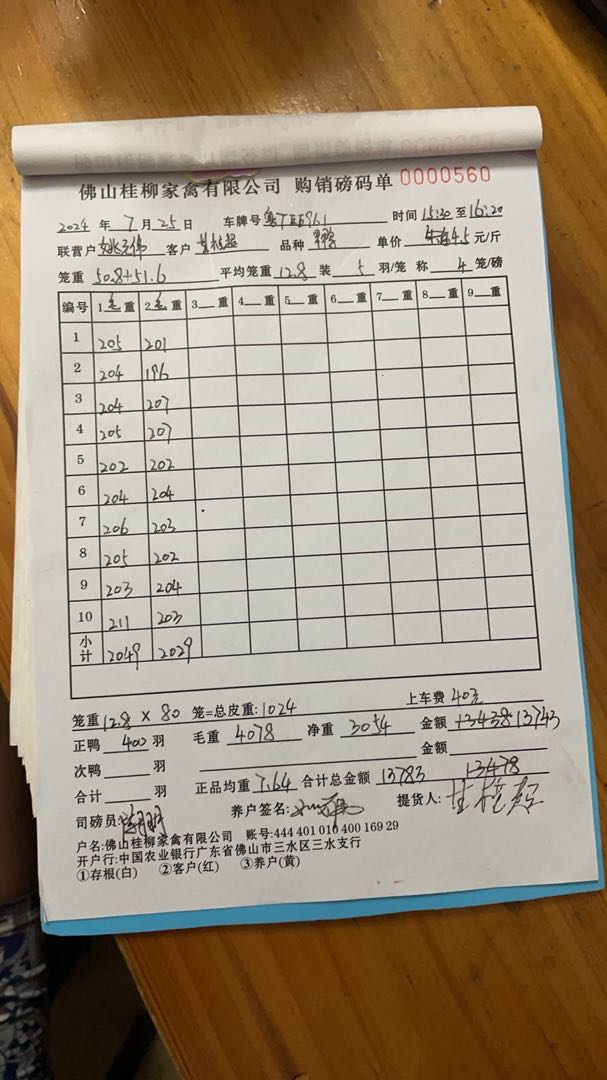 佛山桂柳家禽有限公司 购销磅码单 0000560
2024 年 7 月 25 日 车牌号 961 时间 15:30 至 16:20
联营户 客户 品种 单价 4.5 元/斤
笼重 50.8+51.6 平均笼重 12.8 装 5 羽/笼 称 4 笼/磅
编号 1 毛 重 2 毛 重 3 重 4 重 5 重 6 重 7 重 8 重 9 重
1 205 201
2 204 196
3 204 207
4 205 207
5 202 202
6 204 204
7 206 203
8 205 202
9 203 204
10 211 203
小计 2049 2029
笼重 12.8 × 80 笼=总皮重: 1024 上车费 40元
正鸭 400 羽 毛重 4078 净重 3054 金额 13438 13743
次鸭 羽 金额
合计 羽 正品均重 7.64 合计总金额 13783 13478
司磅员: 养户签名: 提货人:
户名:佛山桂柳家禽有限公司 账号:444 401 010 400 169 29
开户行:中国农业银行广东省佛山市三水区三水支行
①存根(白) ②客户(红) ③养户(黄)